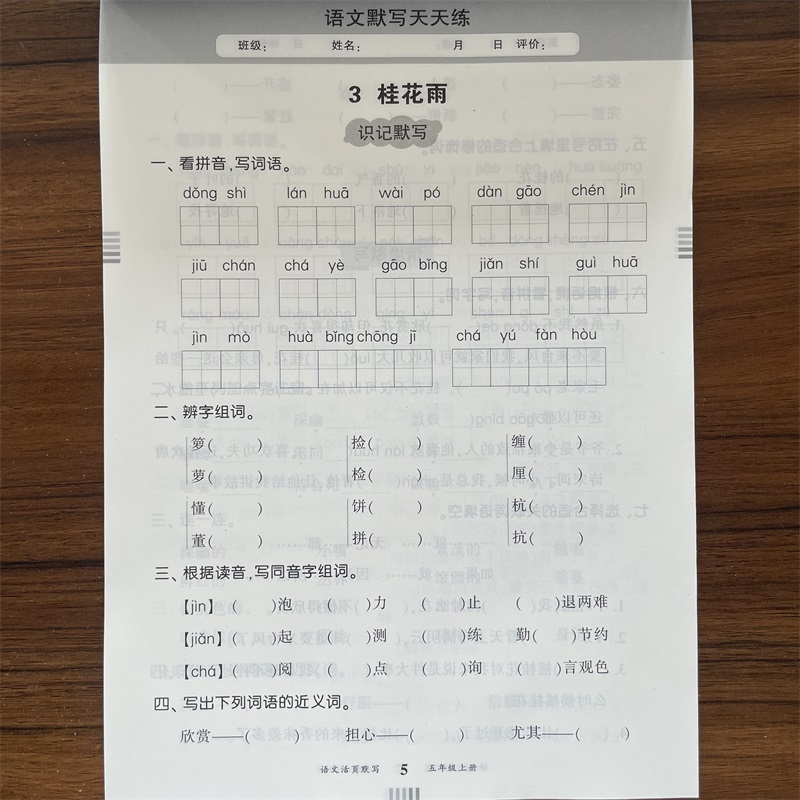 语文默写天天练
班级： 姓名： 月 日 评价：
3 桂花雨
识记默写
一、看拼音，写词语。
dǒng shì lán huā wài pó dàn gāo chén jìn
jiū chán chá yè gāo bǐng jiǎn shí guì huā
jìn mò huà bǐng chōng jī chá yú fàn hòu
二、辨字组词。
箩( ) 捡( ) 缠( )
萝( ) 检( ) 厘( )
懂( ) 饼( ) 杭( )
董( ) 拼( ) 抗( )
三、根据读音，写同音字组词。
【jìn】 ( )泡 ( )力 ( )止 ( )退两难
【jiǎn】 ( )起 ( )测 ( )练 勤( )节约
【chá】 ( )阅 ( )点 ( )询 ( )言观色
四、写出下列词语的近义词。
欣赏——( ) 担心——( ) 尤其——( )
语文活页默写 5 五年级上册